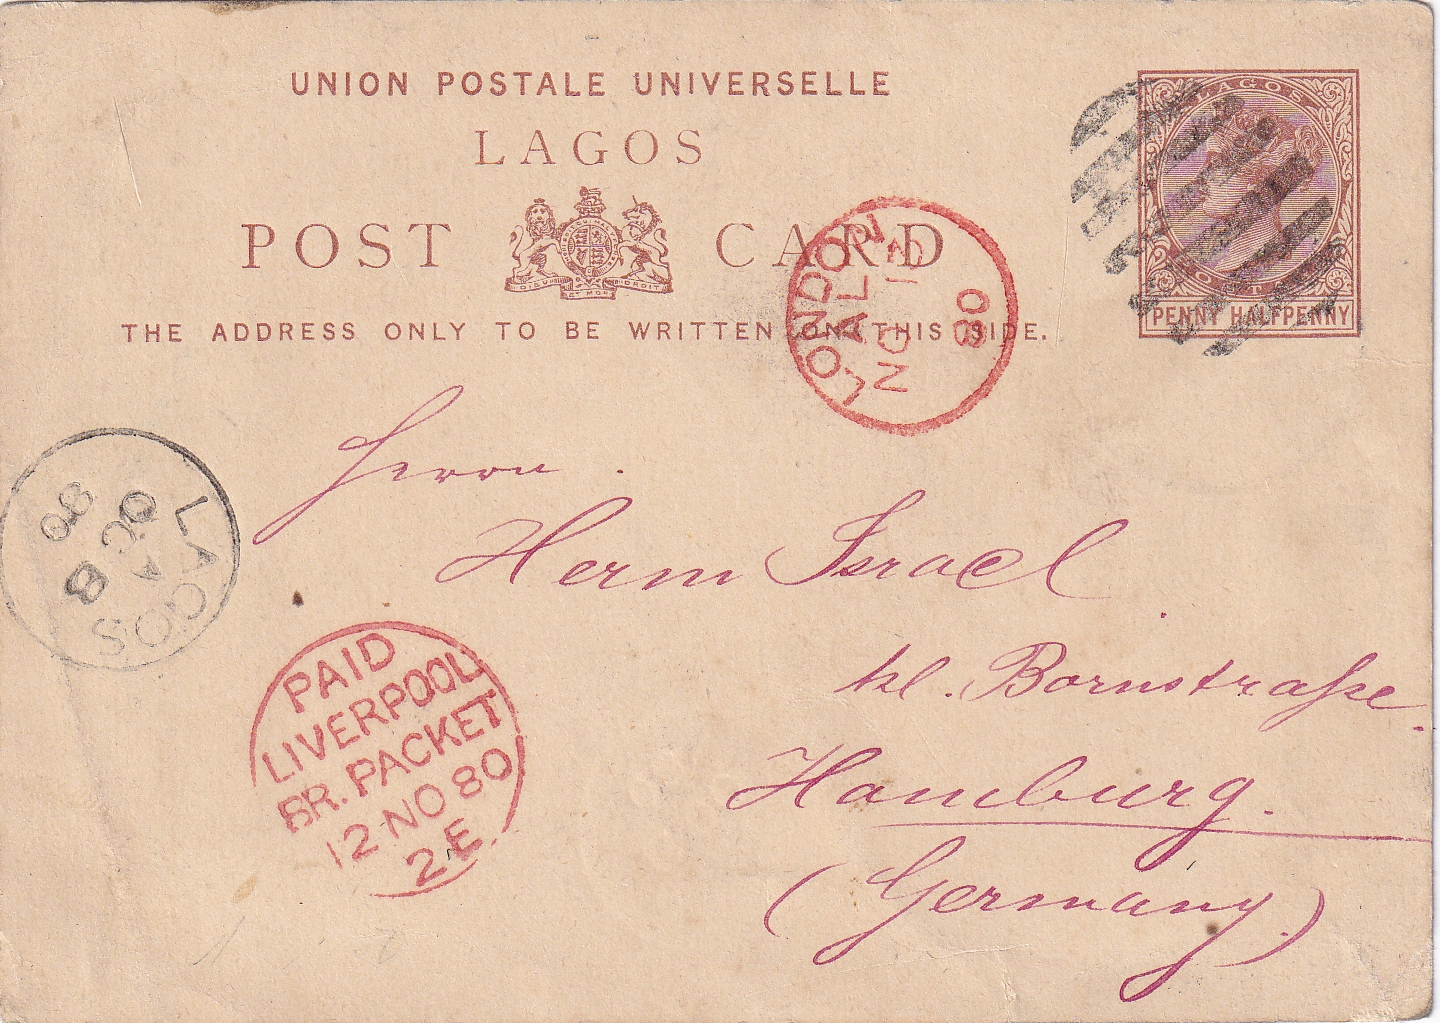 UNION POSTALE UNIVERSELLE
LAGOS
POST CARD
DIEU ET MON DROIT
THE ADDRESS ONLY TO BE WRITTEN ON THIS SIDE.
LAGOS
PENNY HALFPENNY
LONDON
AL
NO
80
LAGOS
A
OC 8
80
Herrn
Herm Israel
kl. Bornstraſse.
Hamburg.
(Germany.)
PAID
LIVERPOOL
BR. PACKET
12 NO 80
2 E